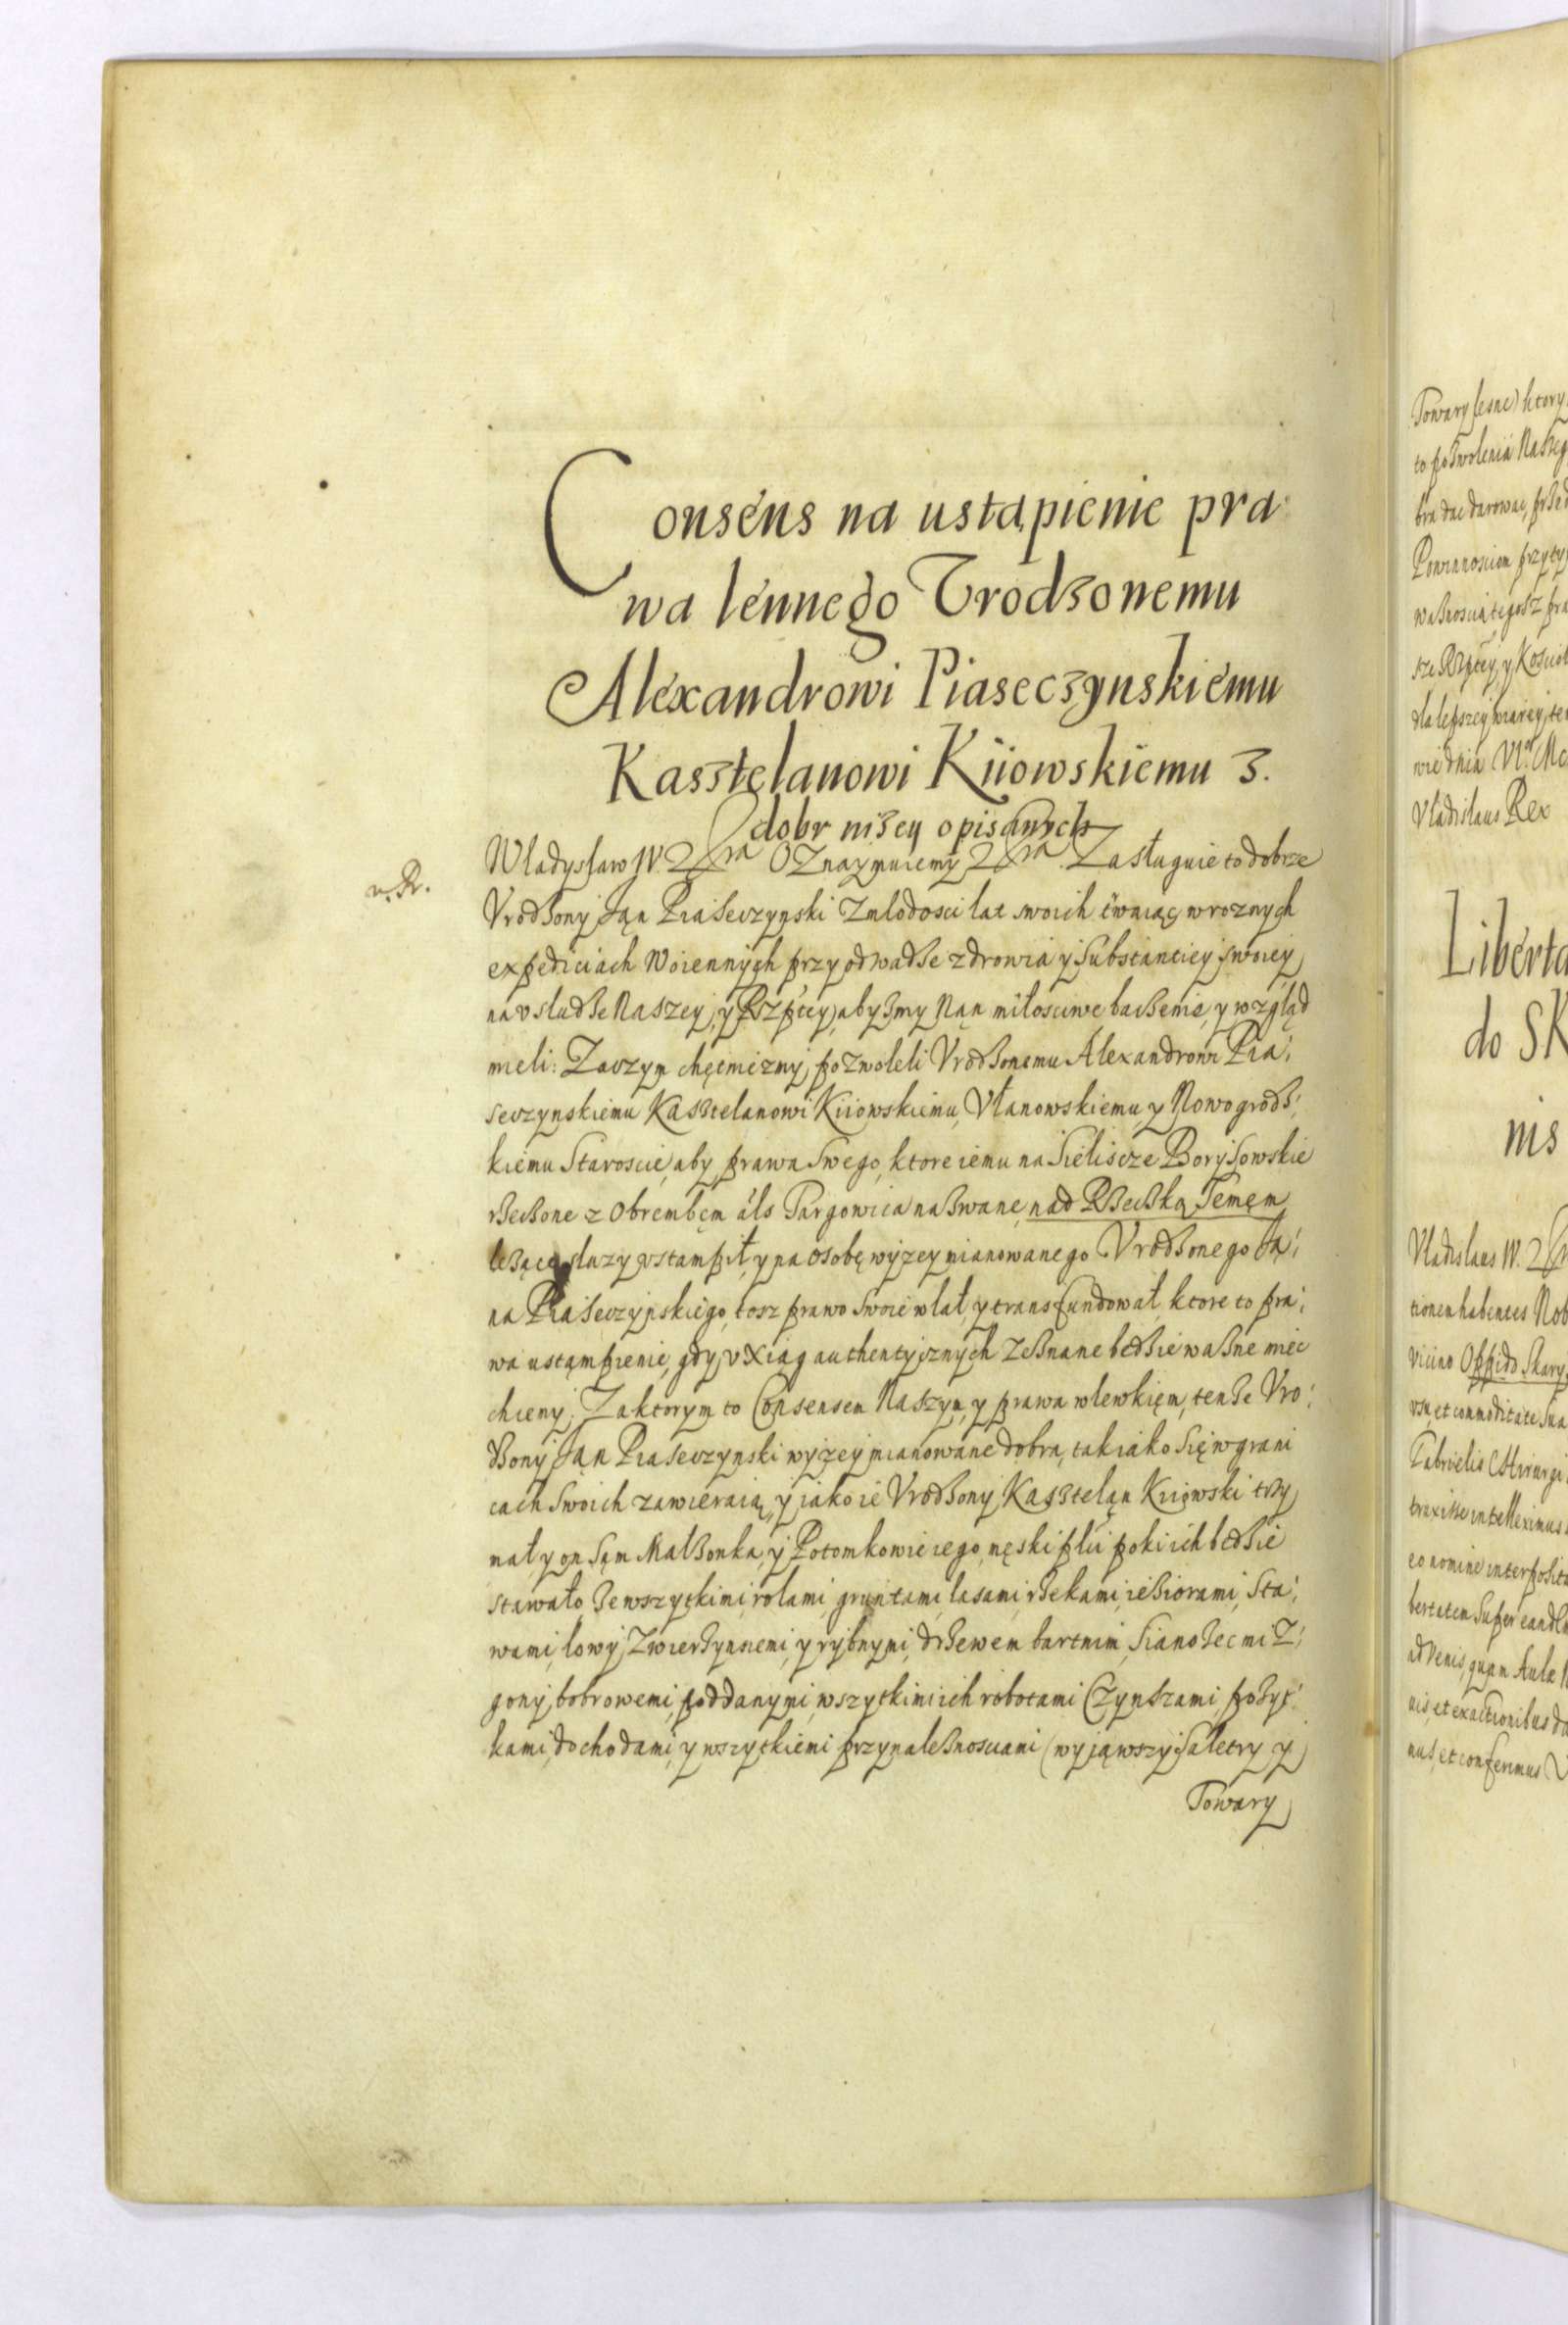 Consens na ustąpienie pra
wa lennego Vrodzonemu
Alexandrowi Piaseczynskiemu
Kasztelanowi Kiiowskiemu z.
dobr nizey opisanych
v. R.
Władysław IV. Oznaymuiemy Zasługuie to dobrze
Vrodzony Jan Piaseczynski z mlodosci lat swoich cwicząc w roznych
expediciach woiennych przy odwadze zdrowia y substantiey swoiey
na vsludze Naszey, y Rzptey, abyzmy nan miłosciwe baczenie, y wzgląd
mieli: Zaczym chętniezmy pozwoleli Vrodzonemu Alexandrowi Pia:
seczynskiemu Kasztelanowi Kiiowskiemu, Vłanowskiemu y Nowogrodz:
kiemu Staroscie, aby prawa swego, ktore iemu na Sieliscze Borysowskie
rzeczone z obrembem als Targowica nazwane, nad Rzeczką Semem
lezące słuzy vstampił, y na osobę wyzey mianowanego Vrodzonego Ja:
na Piaseczynskiego, tosz prawo swoie wlał, y transfundował, ktore to pra:
wa ustąmpienie, gdy v Xiąg authentycznych zeznane bedzie wazne miec
chcemy. Za ktorym to Consensem Naszym, y prawa wlewkiem, tenze Vro:
dzony Jan Piaseczynski wyzey mianowane dobra, tak iako się w grani
cach swoich zawieraią, y iako ie Vrodzony Kasztelan Kiiowski trzy
mał, y on sąm Malzonka, y Potomkowie iego męski płci poki ich bedzie
stawało ze wszytkimi, rolami, gruntami, lasami, rzekami, ieziorami, Sta:
wami, lowy, zwierzynnemi, y rybnymi, drzewem bartnim, Sianozecmi Z:
gony, bobrowemi, poddanymi, wszytkimi ich robotami Czynszami, pozyt:
kami, dochodami, y wszytkiemi przynaleznosciami (wyjąwszy Saletry y
Towary
Towary lesne) ktory
to pozwolenia Naszeg
bra dac darowac, przed
Powinnosciom przyty
waznoscią tegosz pra
sze Rzptey, y Kosciol
dla lepszey wiary, te
wie dnia VI. Mc
Vladislaus Rex
Liberta
do SK
nis
Vladislaus IV.
tionem habentes Nob
vicino Oppido Skary
vsu, et commoditate sua
Gabrielis Chirurgi
traxisse intelleximus
eo nomine interposita
bertatem super eandem
advenis, quam Aulæ N
nis, et exactionibus da
mus, et conferimus V